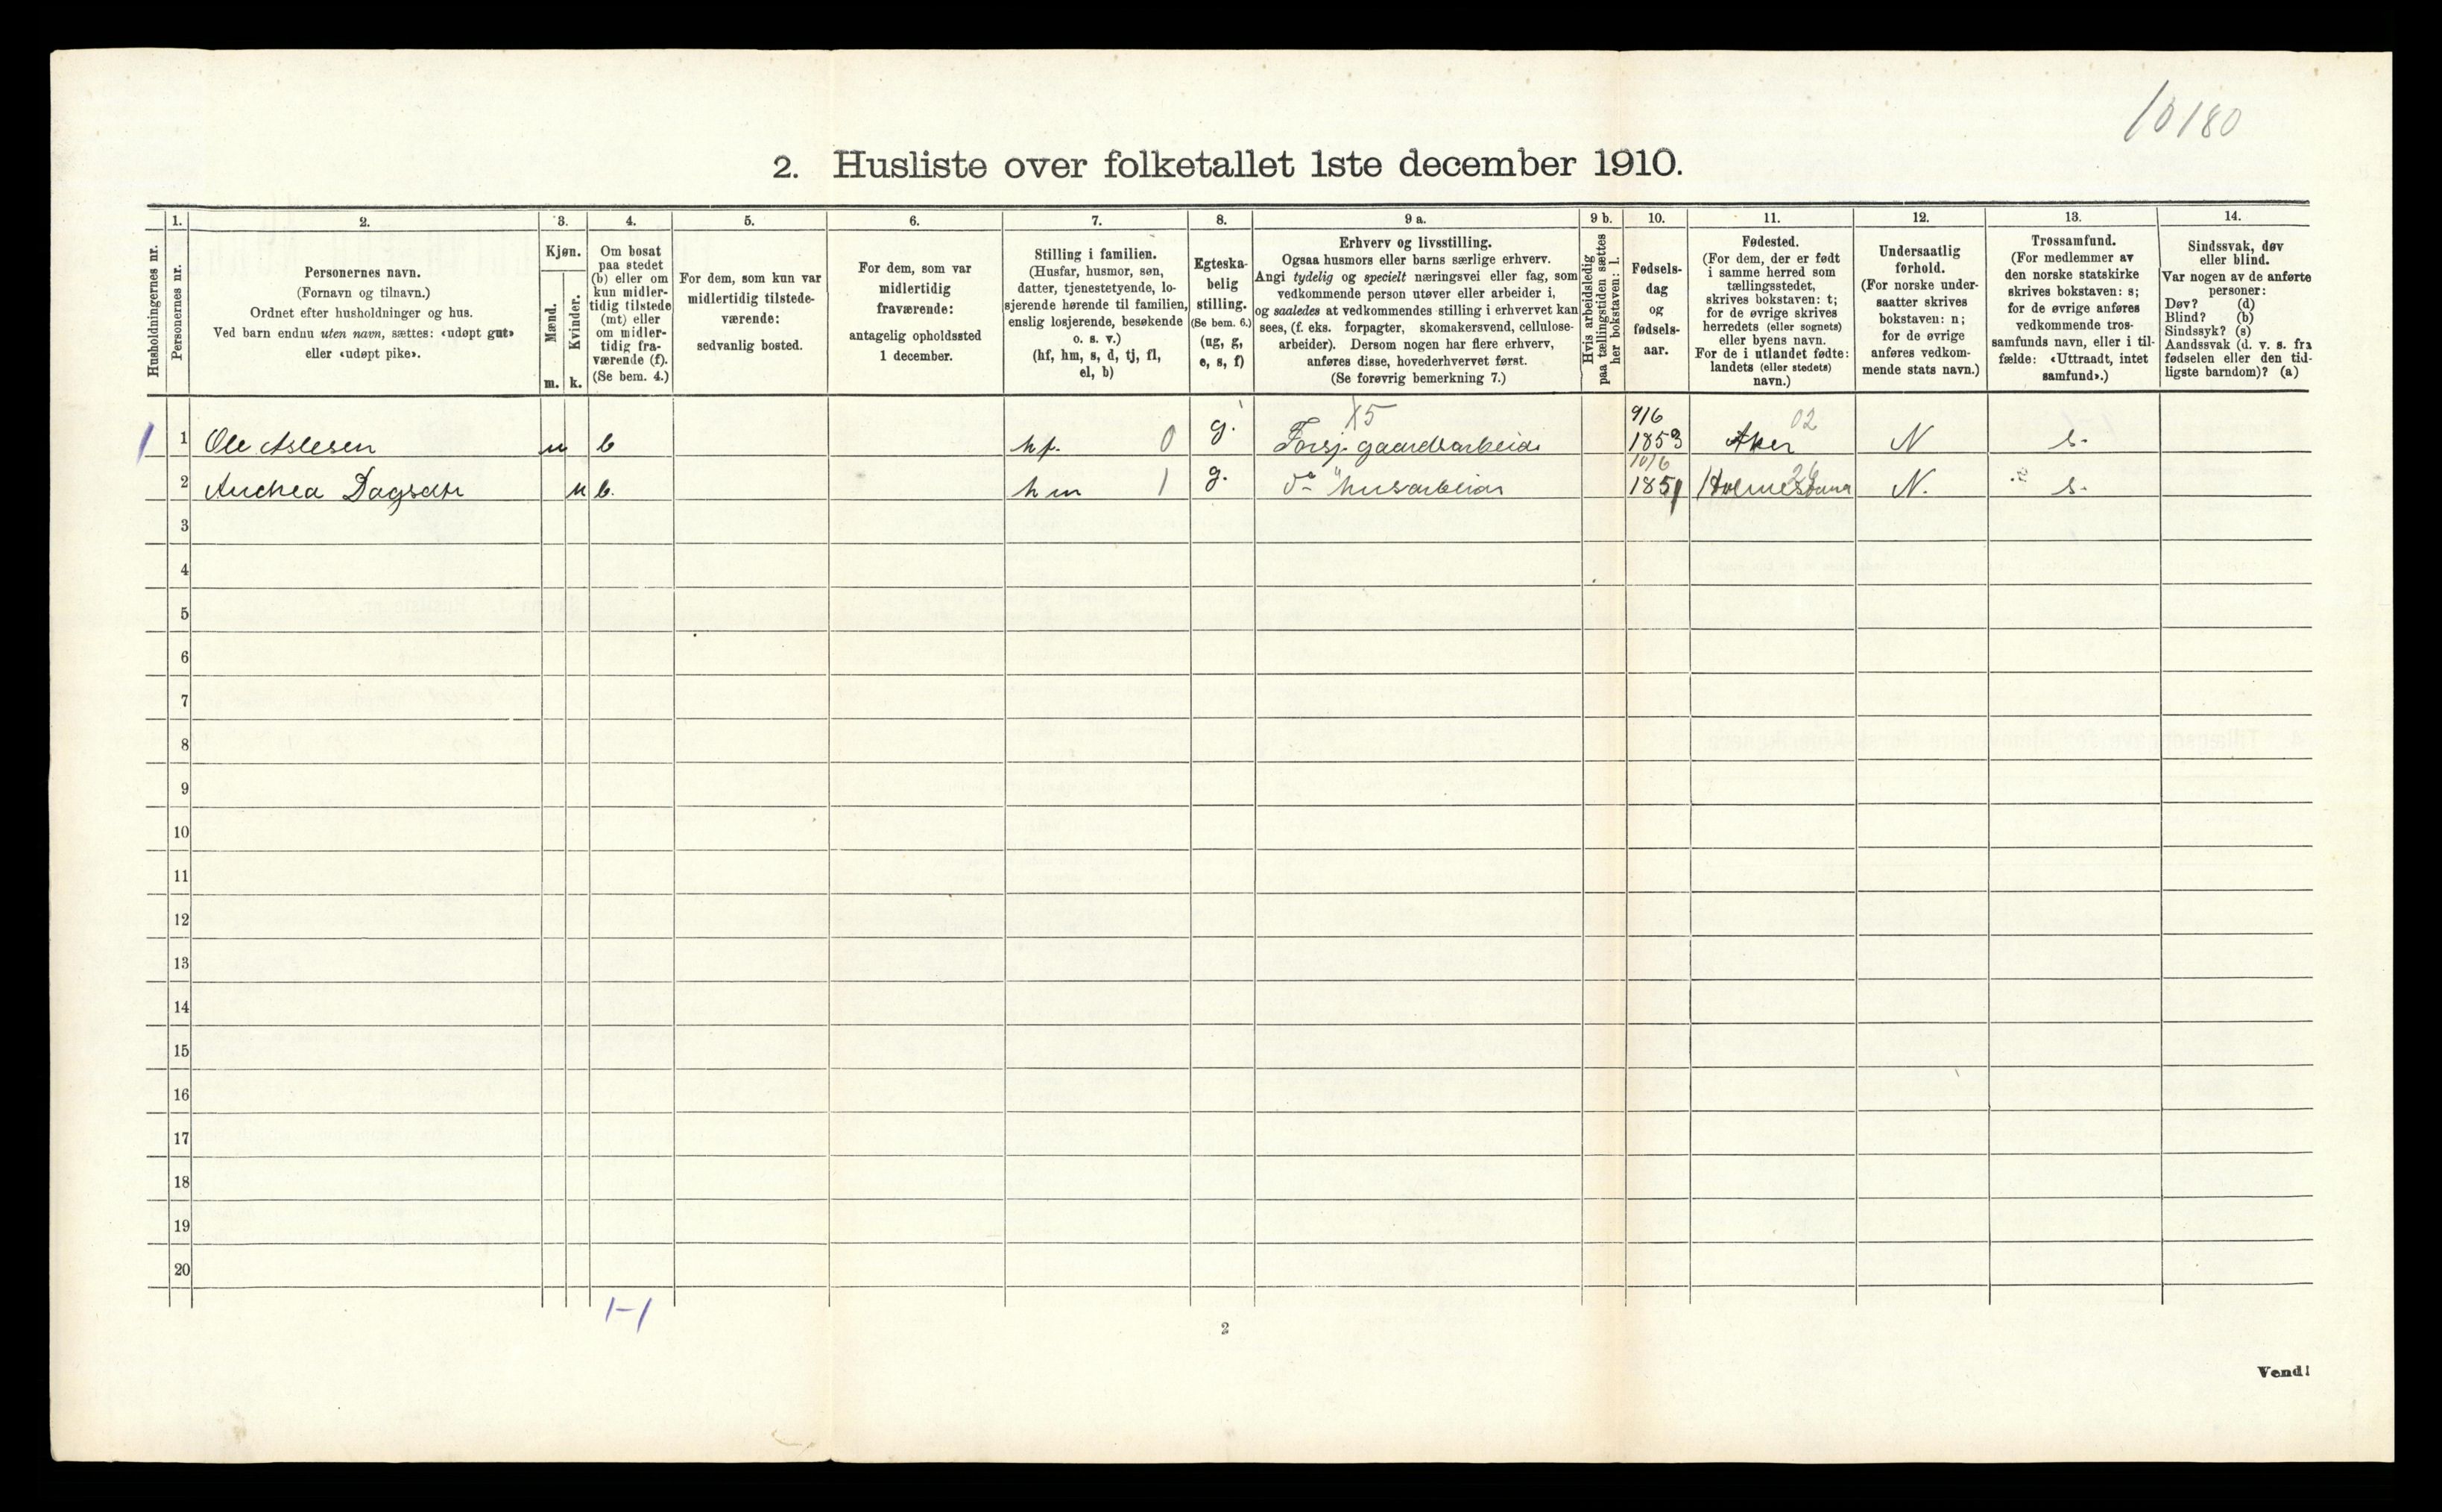 10180
2. Husliste over folketallet 1ste december 1910.
Husholdningernes nr.
1.
Personernes nr.
2.
Personernes navn.
(Fornavn og tilnavn.)
Ordnet efter husholdninger og hus.
Ved barn endnu uten navn, sættes: «udøpt gut»
eller «udøpt pike».
3.
Kjøn.
Mænd.
Kvinder.
m. k.
4.
Om bosat
paa stedet
(b) eller om
kun midler-
tidig tilstede
(mt) eller
om midler-
tidig fra-
værende (f).
(Se bem. 4.)
5.
For dem, som kun var
midlertidig tilstede-
værende:
sedvanlig bosted.
6.
For dem, som var
midlertidig
fraværende:
antagelig opholdssted
1 december.
7.
Stilling i familien.
(Husfar, husmor, søn,
datter, tjenestetyende, lo-
sjerende hørende til familien,
enslig losjerende, besøkende
o. s. v.)
(hf, hm, s, d, tj, fl,
el, b)
8.
Egteska-
belig
stilling.
(Se bem. 6.)
(ug, g,
e, s, f)
9 a.
Erhverv og livsstilling.
Ogsaa husmors eller barns særlige erhverv.
Angi tydelig og specielt næringsvei eller fag, som
vedkommende person utøver eller arbeider i,
og saaledes at vedkommendes stilling i erhvervet kan
sees, (f. eks. forpagter, skomakersvend, cellulose-
arbeider). Dersom nogen har flere erhverv,
anføres disse, hovederhvervet først.
(Se forøvrig bemerkning 7.)
9 b.
Hvis arbeidsledig
paa tællingstiden sættes
her bokstaven: l.
10.
Fødsels-
dag
og
fødsels-
aar.
11.
Fødested.
(For dem, der er født
i samme herred som
tællingsstedet,
skrives bokstaven: t;
for de øvrige skrives
herredets (eller sognets)
eller byens navn.
For de i utlandet fødte:
landets (eller stedets)
navn.)
12.
Undersaatlig
forhold.
(For norske under-
saatter skrives
bokstaven: n;
for de øvrige
anføres vedkom-
mende stats navn.)
13.
Trossamfund.
(For medlemmer av
den norske statskirke
skrives bokstaven: s;
for de øvrige anføres
vedkommende tros-
samfunds navn, eller i til-
fælde: «Uttraadt, intet
samfund».)
14.
Sindssvak, døv
eller blind.
Var nogen av de anførte
personer:
Døv? (d)
Blind? (b)
Sindssyk? (s)
Aandssvak (d. v. s. fra
fødselen eller den tid-
ligste barndom)? (a)
X5 9/6 02
1 1 Ole Aslesen m b hf. 0 g. Forsj. gaardsarbeide 1853 Aker N s.
10/6 26
2 Anchea Dagsdtr k b. hm 1 g. do " husarbeide 1851 Holmestrand N. s.
3
4
5
6
7
8
9
10
11
12
13
14
15
16
17
18
19
20
1-1
2
Vend!